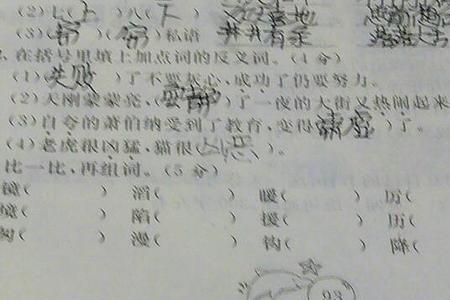 (2)七(上)八(下)
(3)(窃)(窃)私语 井井有条
在括号里填上加点词的反义词。(4分)
(1)(失败)了不要灰心,成功了仍要努力。
(2)天刚蒙蒙亮,(安静)了一夜的大街又热闹起来
(3)自夸的萧伯纳受到了教育,变得(谦虚)了。
(4)老虎很凶猛,猫很( )。
比一比,再组词。(5分)
镜( ) 滔( ) 暖( ) 厉(
境( ) 陷( ) 援( ) 历(
匈( ) 漫( ) 钩( ) 降(
93